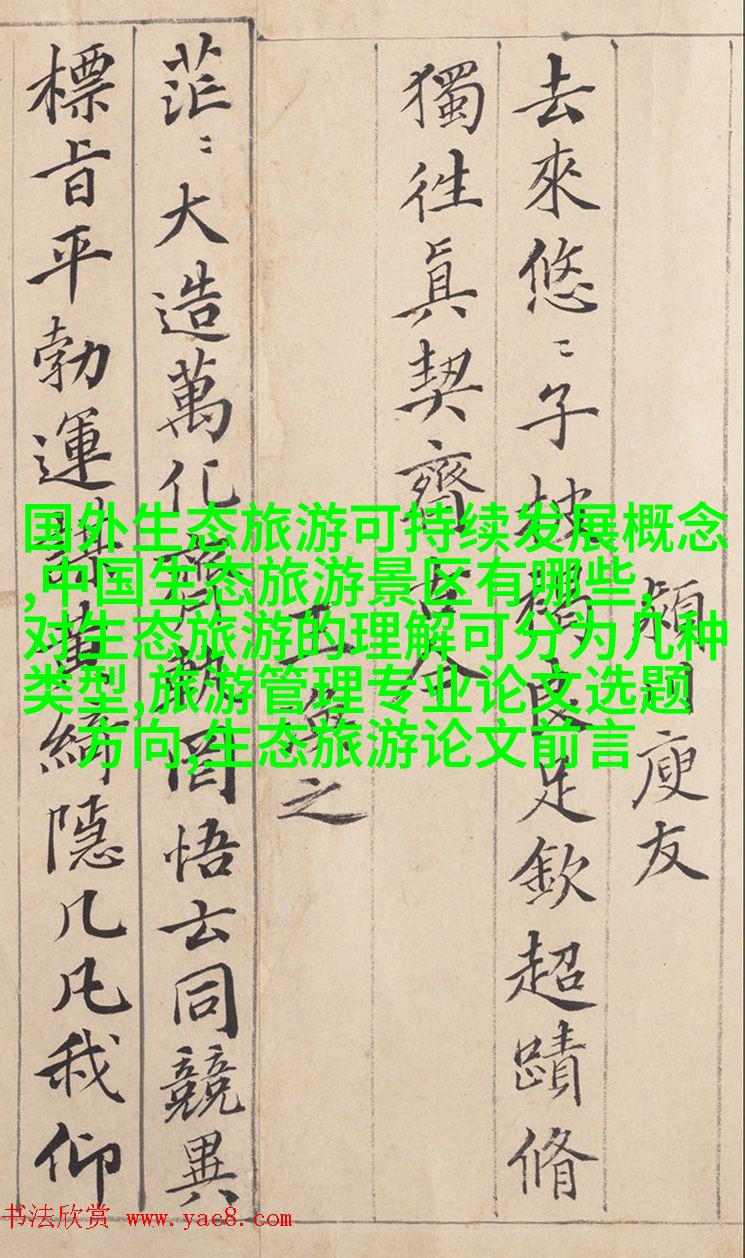 潁川庾友
去來悠〻子披褐良足欽超蹟脩
獨往真契齊古人
王之
茫〻大造萬化齊軌罔悟玄同競異
標旨平勃運謀黃綺隱几凡我仰
国外生态旅游可持续发展概念
,中国生态旅游景区有哪些,
对生态旅游的理解可分为几种
类型,旅游管理专业论文选题
方向,生态旅游论文前言
书法欣赏 www.yac8.com